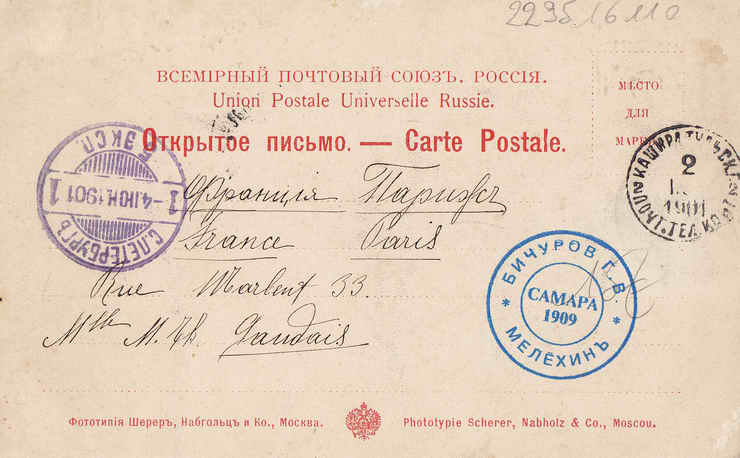 2295 16 110
ВСЕМІРНЫЙ ПОЧТОВЫЙ СОЮЗЪ. РОССІЯ.
Union Postale Universelle Russie.
Открытое письмо. — Carte Postale.
МѢСТО
ДЛЯ
МАРКИ
С.ПЕТЕРБУРГЪ
1 -4.ІЮН.1901 1
ЭКСП.
КАШИРА
2
1901
ПОЧТ. ТЕЛ. КО
Франція Парижъ
France Paris
Rue Marbeuf 33.
Mlle M. Th. Gaudais
БИЧУРОВ Г. В.
САМАРА
1909
МЕЛЁХИНЪ
Фототипія Шереръ, Набгольцъ и Ко., Москва.
Phototypie Scherer, Nabholz & Co., Moscou.